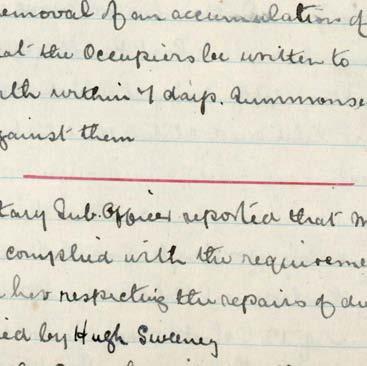 removal of an accumulation of
at the Occupiers be written to
lth within 7 days. Summonse
gainst them
tary Sub. Officer reported that M
complied with the requireme
her respecting the repairs of d
ied by Hugh Sweeney